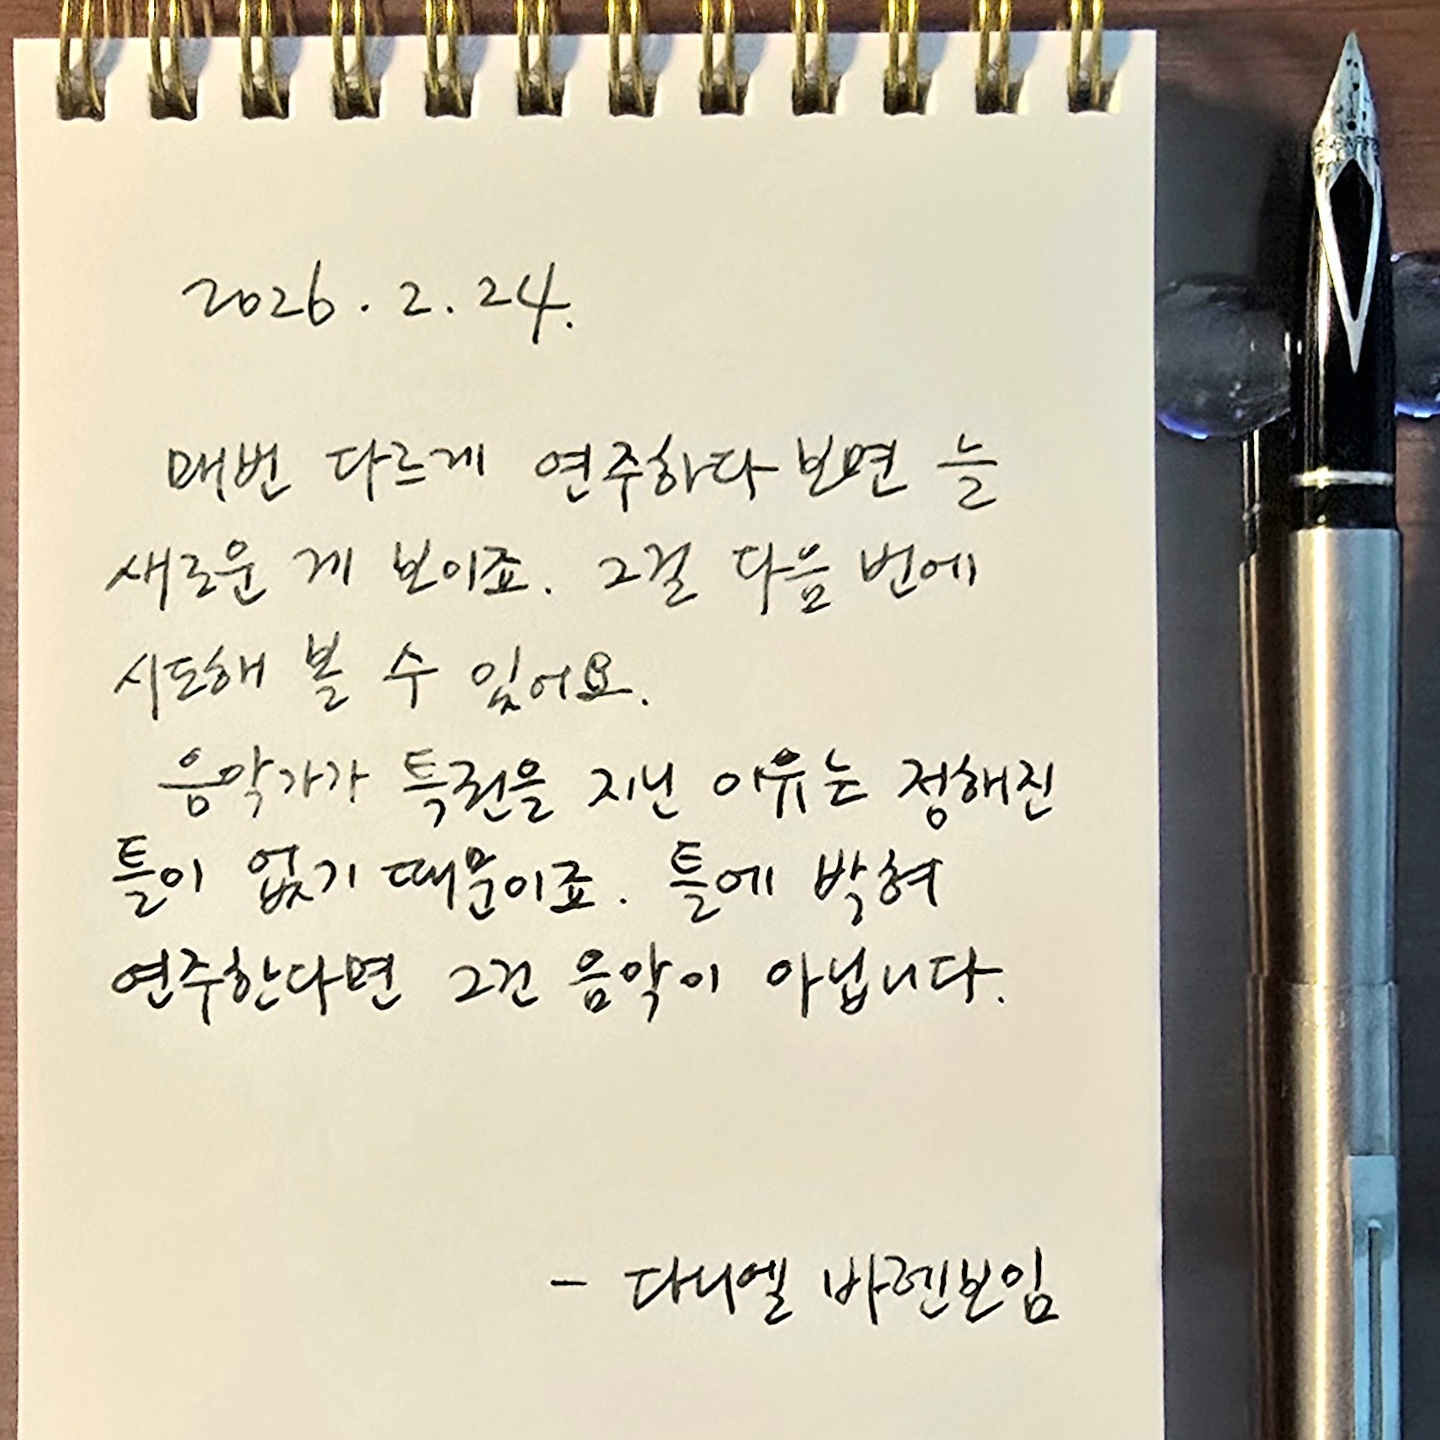 2026. 2. 24.
매번 다르게 연주하다 보면 늘
새로운 게 보이죠. 그걸 다음 번에
시도해 볼 수 있어요.
음악가가 특권을 지닌 이유는 정해진
틀이 없기 때문이죠. 틀에 박혀
연주한다면 그건 음악이 아닙니다.
- 다니엘 바렌보임